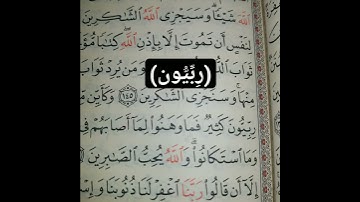 ٱللَّهَ شَيْـًٔا وَسَيَجْزِى ٱللَّهُ ٱلشَّـٰكِرِينَ
لِنَفْسٍ أَن تَمُوتَ إِلَّا بِإِذْنِ ٱللَّهِ كِتَـٰبًا مُّؤَ
ثَوَابَ وَمَن يُرِدْ ثَوَابَ
(رِبِّيُّون)
مِنْهَا وَسَنَجْزِى ٱلشَّـٰكِرِينَ ١٤٥ وَكَأَيِّن مِّن
رِبِّيُّونَ كَثِيرٌ فَمَا وَهَنُوا۟ لِمَآ أَصَابَهُمْ فِى
وَمَا ٱسْتَكَانُوا۟ وَٱللَّهُ يُحِبُّ ٱلصَّـٰبِرِينَ
إِلَّآ أَن قَالُوا۟ رَبَّنَا ٱغْفِرْ لَنَا ذُنُوبَنَا وَإِسْ